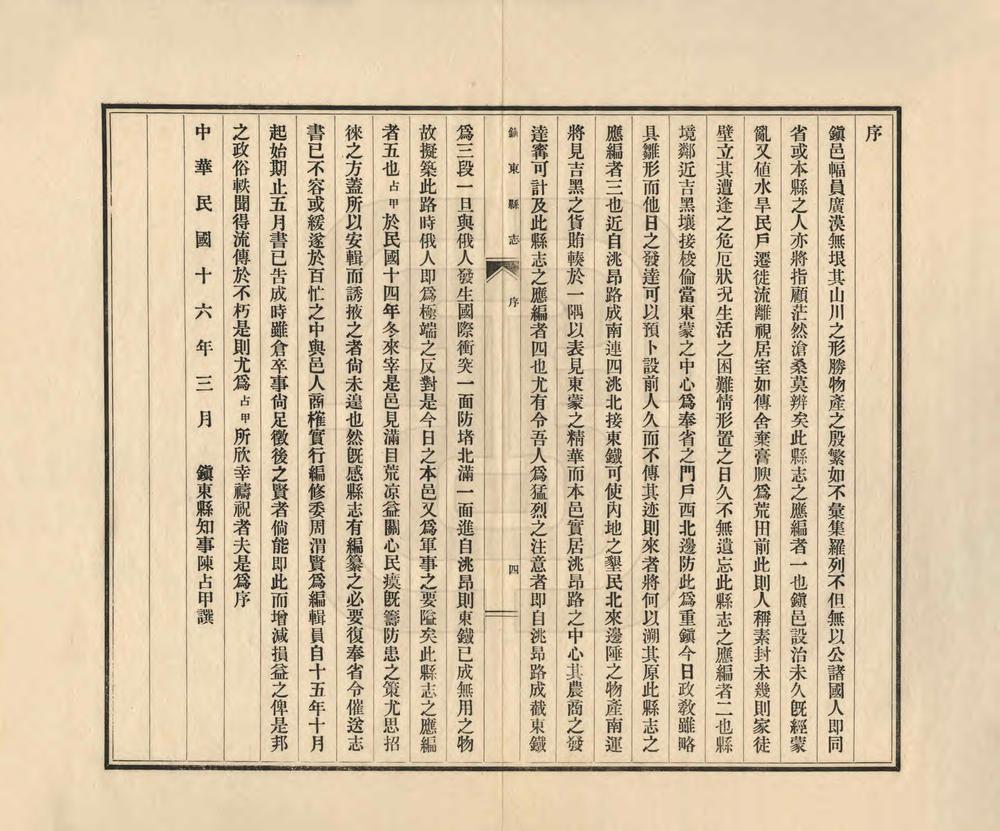 序
鎭邑幅員廣漠無垠其山川之形勝物產之殷繁如不彙集羅列不但無以公諸國人即同
省或本縣之人亦將指顧茫然滄桑莫辨矣此縣志之應編者一也鎭邑設治未久旣經蒙
亂又値水旱民戶遷徙流離視居室如傳舍棄膏腴爲荒田前此則人稱素封未幾則家徒
壁立其遭逢之危厄狀况生活之困難情形置之日久不無遺忘此縣志之應編者二也縣
境鄰近吉黑壤接梭倫當東蒙之中心爲奉省之門戶西北邊防此爲重鎭今日政敎雖略
具雛形而他日之發達可以預卜設前人久而不傳其迹則來者將何以溯其原此縣志之
應編者三也近自洮昂路成南連四洮北接東鐵可使內地之墾民北來邊陲之物產南運
將見吉黑之貨賄輳於一隅以表見東蒙之精華而本邑實居洮昂路之中心其農商之發
達寗可計及此縣志之應編者四也尤有令吾人爲猛烈之注意者即自洮昂路成截東鐵
鎭東縣志 序 四
爲三段一旦與俄人發生國際衝突一面防堵北滿一面進自洮昂則東鐵已成無用之物
故擬築此路時俄人即爲極端之反對是今日之本邑又爲軍事之要隘矣此縣志之應編
者五也占甲於民國十四年冬來宰是邑見滿目荒凉益關心民瘼旣籌防患之策尤思招
徠之方蓋所以安輯而誘掖之者尙未遑也然旣感縣志有編纂之必要復奉省令催送志
書已不容或緩遂於百忙之中與邑人商榷實行編修委周渭賢爲編輯員自十五年十月
起始期止五月書已吿成時雖倉卒事尙足徵後之賢者倘能即此而增減損益之俾是邦
之政俗軼聞得流傳於不朽是則尤爲占甲所欣幸禱祝者夫是爲序
中華民國十六年三月 鎭東縣知事陳占甲譔